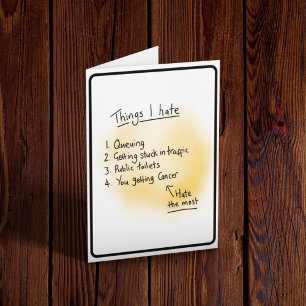 Things I hate
1. Queuing
2. Getting stuck in traffic
3. Public toilets
4. You getting Cancer
Hate
the most